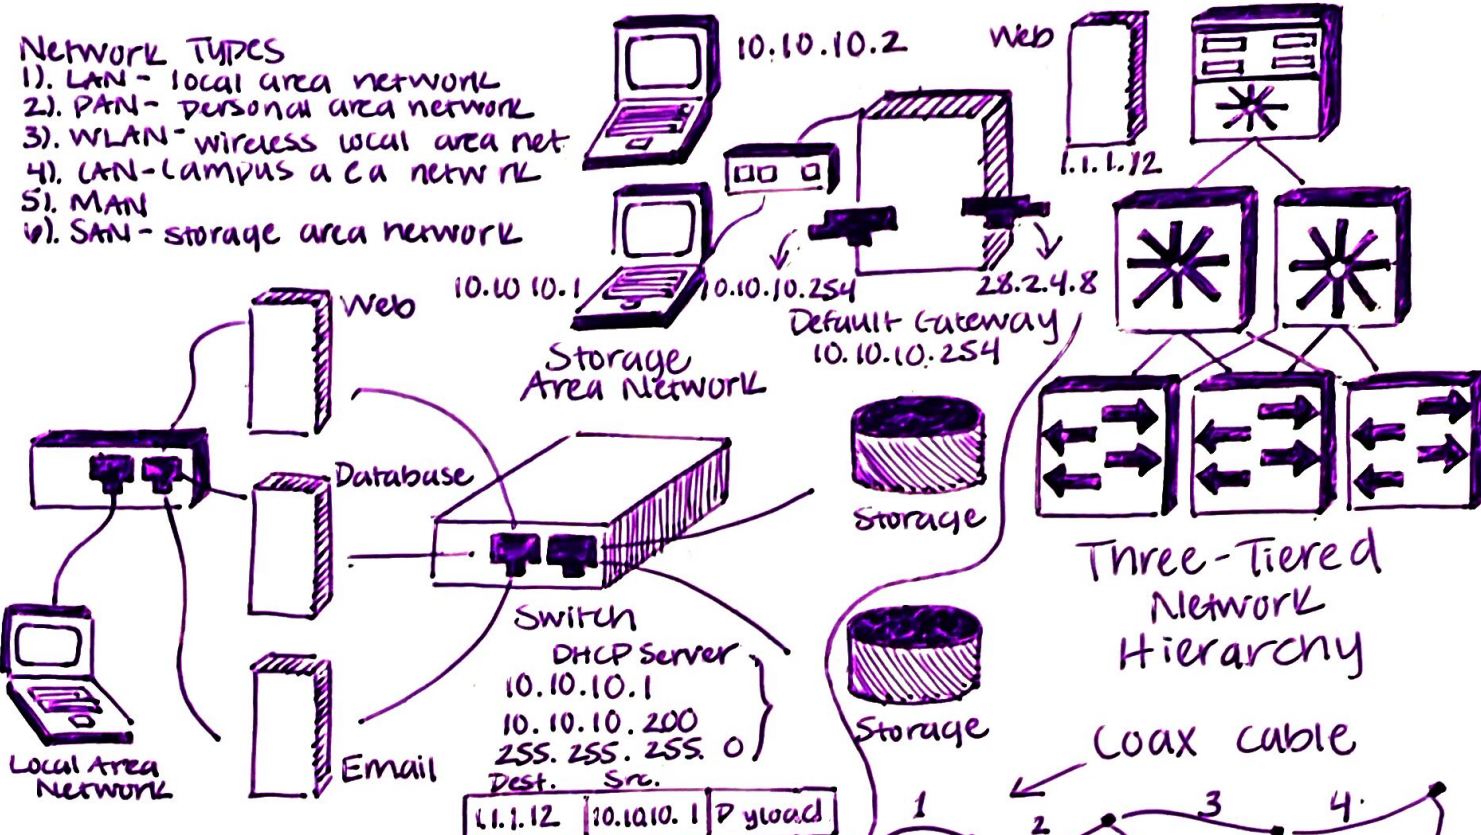 Network Types
1). LAN - local area network
2). PAN - personal area network
3). WLAN - wireless local area net
4). CAN - Campus a ea netw rk
5). MAN
6). SAN - storage area network
10.10.10.2
Web
1.1.1.12
10.10 10.1
10.10.10.254
28.2.4.8
Default Gateway
10.10.10.254
Storage
Area Network
Web
Database
Email
Local Area
Network
Switch
Storage
Storage
DHCP Server
10.10.10.1
10.10.10.200
255.255.255.0
Dest. Src.
1.1.1.12 10.10.10.1 P yload
Three-Tiered
Network
Hierarchy
Coax cable
1 2 3 4.